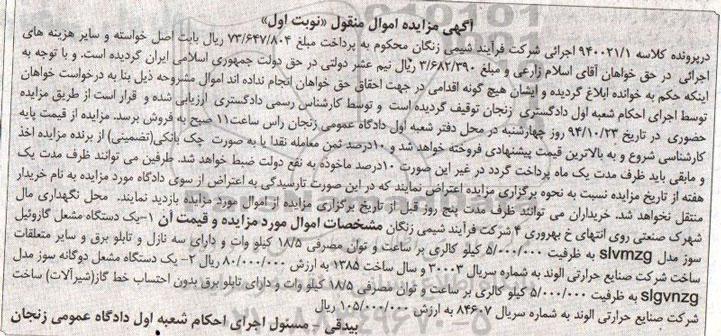 آگهی مزایده اموال منقول «نوبت اول»
درپرونده کلاسه ۹۴۰۰۲۱/۱ اجرائی شرکت فرآیند شیمی زنگان محکوم به پرداخت مبلغ ۷۳/۶۴۷/۸۰۴ ریال بابت اصل خواسته و سایر هزینه های
اجرائی در حق خواهان آقای اسلام زارعی و مبلغ ۳/۶۸۲/۳۹۰ ریال نیم عشر دولتی در حق دولت جمهوری اسلامی ایران گردیده است. و با توجه به
اینکه حکم به خوانده ابلاغ گردیده و ایشان هیچ گونه اقدامی در جهت احقاق حق خواهان انجام نداده اند اموال مشروحه ذیل بنا به درخواست خواهان
توسط اجرای احکام شعبه اول دادگستری زنجان توقیف گردیده است و توسط کارشناس رسمی دادگستری ارزیابی شده و قرار است از طریق مزایده
حضوری در تاریخ ۹۴/۱۰/۲۳ روز چهارشنبه در محل دفتر شعبه اول دادگاه عمومی زنجان راس ساعت۱۱ صبح به فروش برسد. مزایده از قیمت پایه
کارشناسی شروع و به بالاترین قیمت پیشنهادی فروخته خواهد شد و ۱۰درصد ثمن معامله نقدا یا به صورت چک بانکی(تضمینی) از برنده مزایده اخذ
و مابقی باید ظرف مدت یک ماه پرداخت گردد در غیر این صورت ۱۰درصد ماخوذه به نفع دولت ضبط خواهد شد. طرفین می توانند ظرف مدت یک
هفته از تاریخ مزایده نسبت به نحوه برگزاری مزایده اعتراض نمایند که در این صورت تارسیدگی به اعتراض از سوی دادگاه مورد مزایده به نام خریدار
منتقل نخواهد شد. خریداران می توانند ظرف مدت پنج روز قبل از تاریخ برگزاری مزایده از اموال مورد مزایده بازدید نمایند. محل نگهداری مال
شهرک صنعتی روی انتهای خ بهروری ۴ شرکت فرآیند شیمی زنگان مشخصات اموال مورد مزایده و قیمت آن ۱-یک دستگاه مشعل گازوئیل
سوز مدل slvmzg به ظرفیت ۵/۰۰۰/۰۰۰ کیلو کالری بر ساعت و توان مصرفی ۱۸/۵ کیلو وات و دارای سه نازل و تابلو برق و سایر متعلقات
ساخت شرکت صنایع حرارتی الوند به شماره سریال ۳۰۰۰۳ و سال ساخت ۱۳۸۵ به ارزش ۸۰/۰۰۰/۰۰۰ ریال ۲- یک دستگاه مشعل دوگانه سوز مدل
slgvnzg به ظرفیت ۵/۰۰۰/۰۰۰ کیلو کالری بر ساعت و توان مصرفی ۱۸/۵ کیلو وات و دارای تابلو برق بدون احتساب خط گاز(شیرآلات) ساخت
شرکت صنایع حرارتی الوند به شماره سریال ۸۴۶۰۷ به ارزش ۱۰۵/۰۰۰/۰۰۰ ریال
بیدقی - مسئول اجرای احکام شعبه اول دادگاه عمومی زنجان